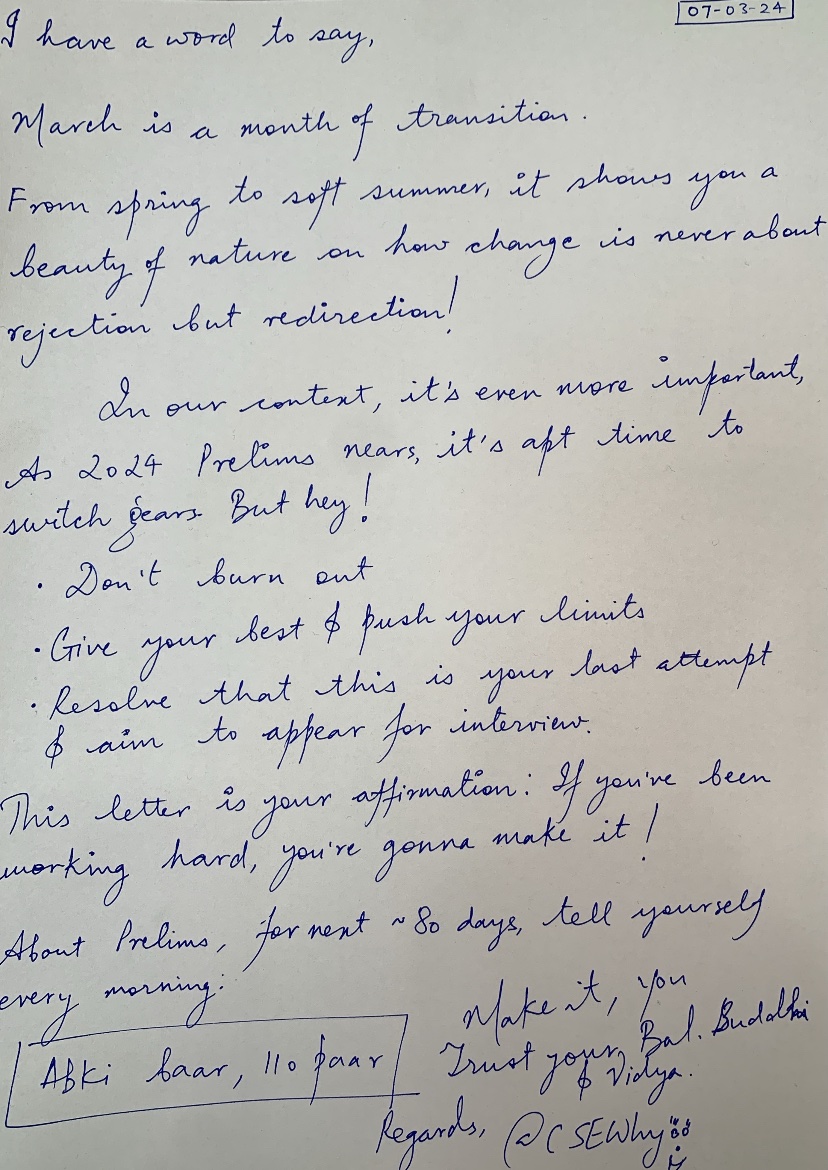 07-03-24
I have a word to say,
March is a month of transition.
From spring to soft summer, it shows you a
beauty of nature on how change is never about
rejection but redirection!
In our context, it's even more important,
As 2024 Prelims nears, it's apt time to
switch gears. But hey!
• Don't burn out
• Give your best & push your limits
• Resolve that this is your last attempt
& aim to appear for interview.
This letter is your affirmation: If you've been
working hard, you're gonna make it!
About Prelims, for next ~80 days, tell yourself
every morning:
Abki baar, 110 paar
Make it, you
Trust your Bal. Buddhi
& Vidya.
Regards, @CSEWhy